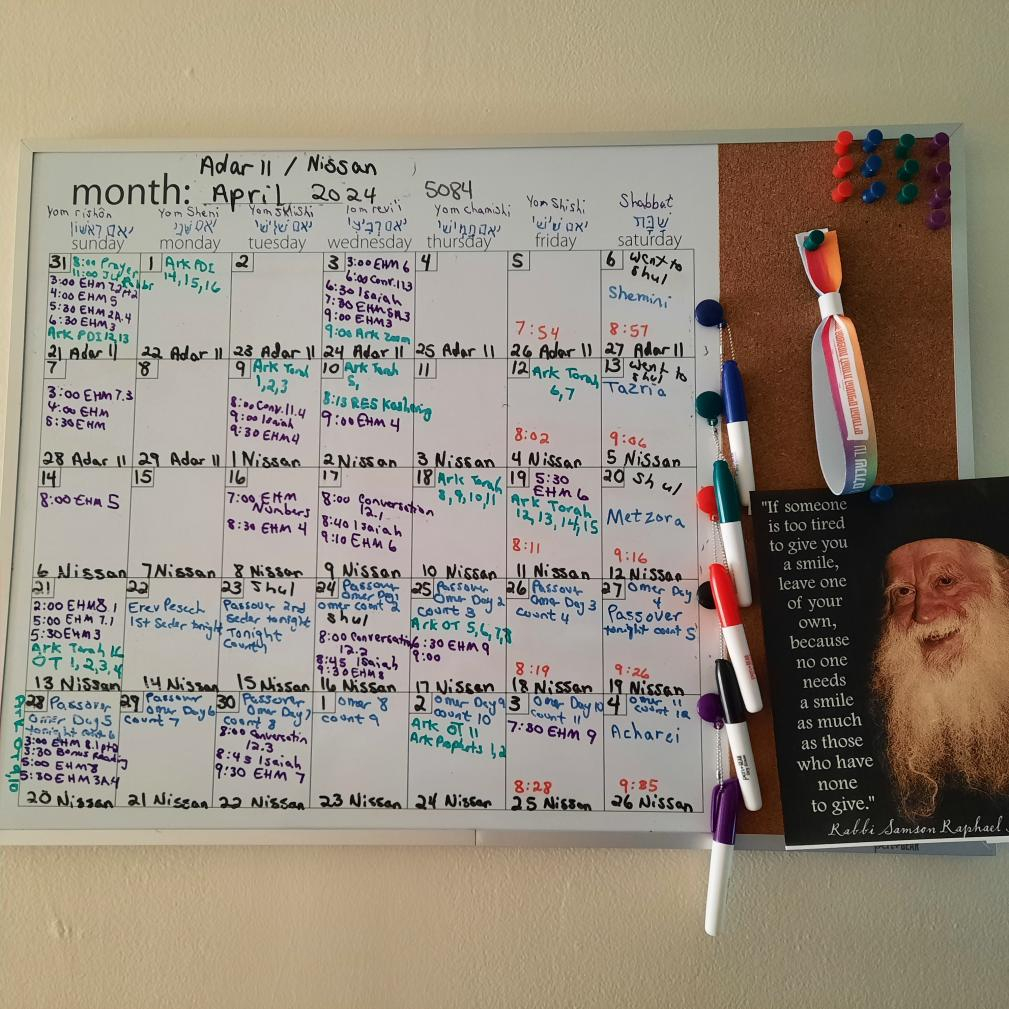 Adar II / Nissan
month: April 2024 5084
Yom rishon
Yom Sheni
Yom Shlishi
Yom revi'i
Yom chamishi
Yom Shishi
Shabbat
יאם ראשון
יאם שני
יאם שלישי
יאם רביעי
יאם חמישי
יאם שישי
שבת
sunday
monday
tuesday
wednesday
thursday
friday
saturday
31 8:00 Prayer
3:00 EHM 7.2 pt2
4:00 EHM 5
5:30 EHM 2A.4
6:30 EHM 3
Ark PDI 12,13
21 Adar II
1 Ark PDI
14,15,16
22 Adar II
2
23 Adar II
3 3:00 EHM 6
6:00 Conv. 11.3
6:30 Isaiah
7:30 EHM 5A.3
9:00 EHM 3
9:00 Ark Zoom
24 Adar II
4
25 Adar II
5
7:54
26 Adar II
6 went to
shul
Shemini
8:57
27 Adar II
7
3:00 EHM 7.3
4:00 EHM
5:30 EHM
28 Adar II
8
29 Adar II
9 Ark Torah
1,2,3
8:00 Conv. 11.4
9:00 Isaiah
9:30 EHM 4
1 Nissan
10 Ark Torah
5,
8:15 RES Kashering
9:00 EHM 4
2 Nissan
11
3 Nissan
12 Ark Torah
6,7
8:02
4 Nissan
13 went to
shul
Tazria
9:06
5 Nissan
14
8:00 EHM 5
6 Nissan
15
7 Nissan
16
7:00 EHM
Numbers
8:30 EHM 4
8 Nissan
17
8:00 Conversation
12.1
8:40 Isaiah
9:10 EHM 6
9 Nissan
18 Ark Torah
8,9,10,11
10 Nissan
19 5:30
EHM 6
Ark Torah
12,13,14,15
8:11
11 Nissan
20 Shul
Metzora
9:16
12 Nissan
21
2:00 EHM 8.1
5:00 EHM 7.1
5:30 EHM 3
Ark Torah 16
OT 1,2,3,4
13 Nissan
22
Erev Pesech
1st Seder tonight
14 Nissan
23 Shul
Passover 2nd
Seder tonight
Tonight
count 1
15 Nissan
24 Passover
Omer Day 1
omer count 2
shul
8:00 Conversation
12.2
8:45 Isaiah
9:30 EHM 8
16 Nissan
25 Passover
Omer Day 2
count 3
Ark OT 5,6,7,8
6:30 EHM 9
9:00
17 Nissan
26 Passover
Omer Day 3
count 4
8:19
18 Nissan
27 Omer Day
4
Passover
tonight count 5
9:26
19 Nissan
28 Passover
Omer Day 5
tonight count 6
3:00 EHM 8.1 pt2
3:30 Bonus Reading
5:00 EHM 8
5:30 EHM 3A.4
20 Nissan
29 Passover
Omer Day 6
count 7
21 Nissan
30 Passover
Omer Day 7
count 8
8:00 Conversation
12.3
8:45 Isaiah
9:30 EHM 7
22 Nissan
1 Omer 8
count 9
23 Nissan
2 Omer Day 9
count 10
Ark OT 11
Ark Prophets 1,2
24 Nissan
3 Omer Day 10
count 11
7:30 EHM 9
8:28
25 Nissan
4 Omer 11
count 12
Acharei
9:35
26 Nissan
"If someone
is too tired
to give you
a smile,
leave one
of your
own,
because
no one
needs
a smile
as much
as those
who have
none
to give."
Rabbi Samson Raphael